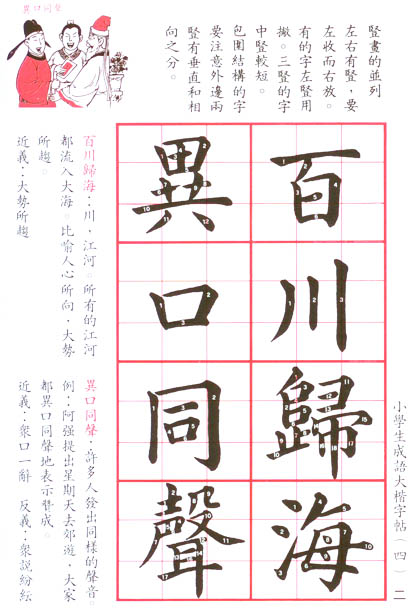 小學生成語大楷字帖（四）二
豎畫的並列
左右有豎，要
左收而右放。
有的字左豎用
撇。三豎的字
中豎較短。
包圍結構的字
要注意外邊兩
豎有垂直和相
向之分。
異口同聲
百川歸海
異口同聲
百川歸海：川，江河。所有的江河
都流入大海。比喻人心所向，大勢
所趨。
近義：大勢所趨
異口同聲：許多人發出同樣的聲音。
例：阿强提出星期天去郊遊，大家
都異口同聲地表示贊成。
近義：衆口一辭 反義：衆説紛紜